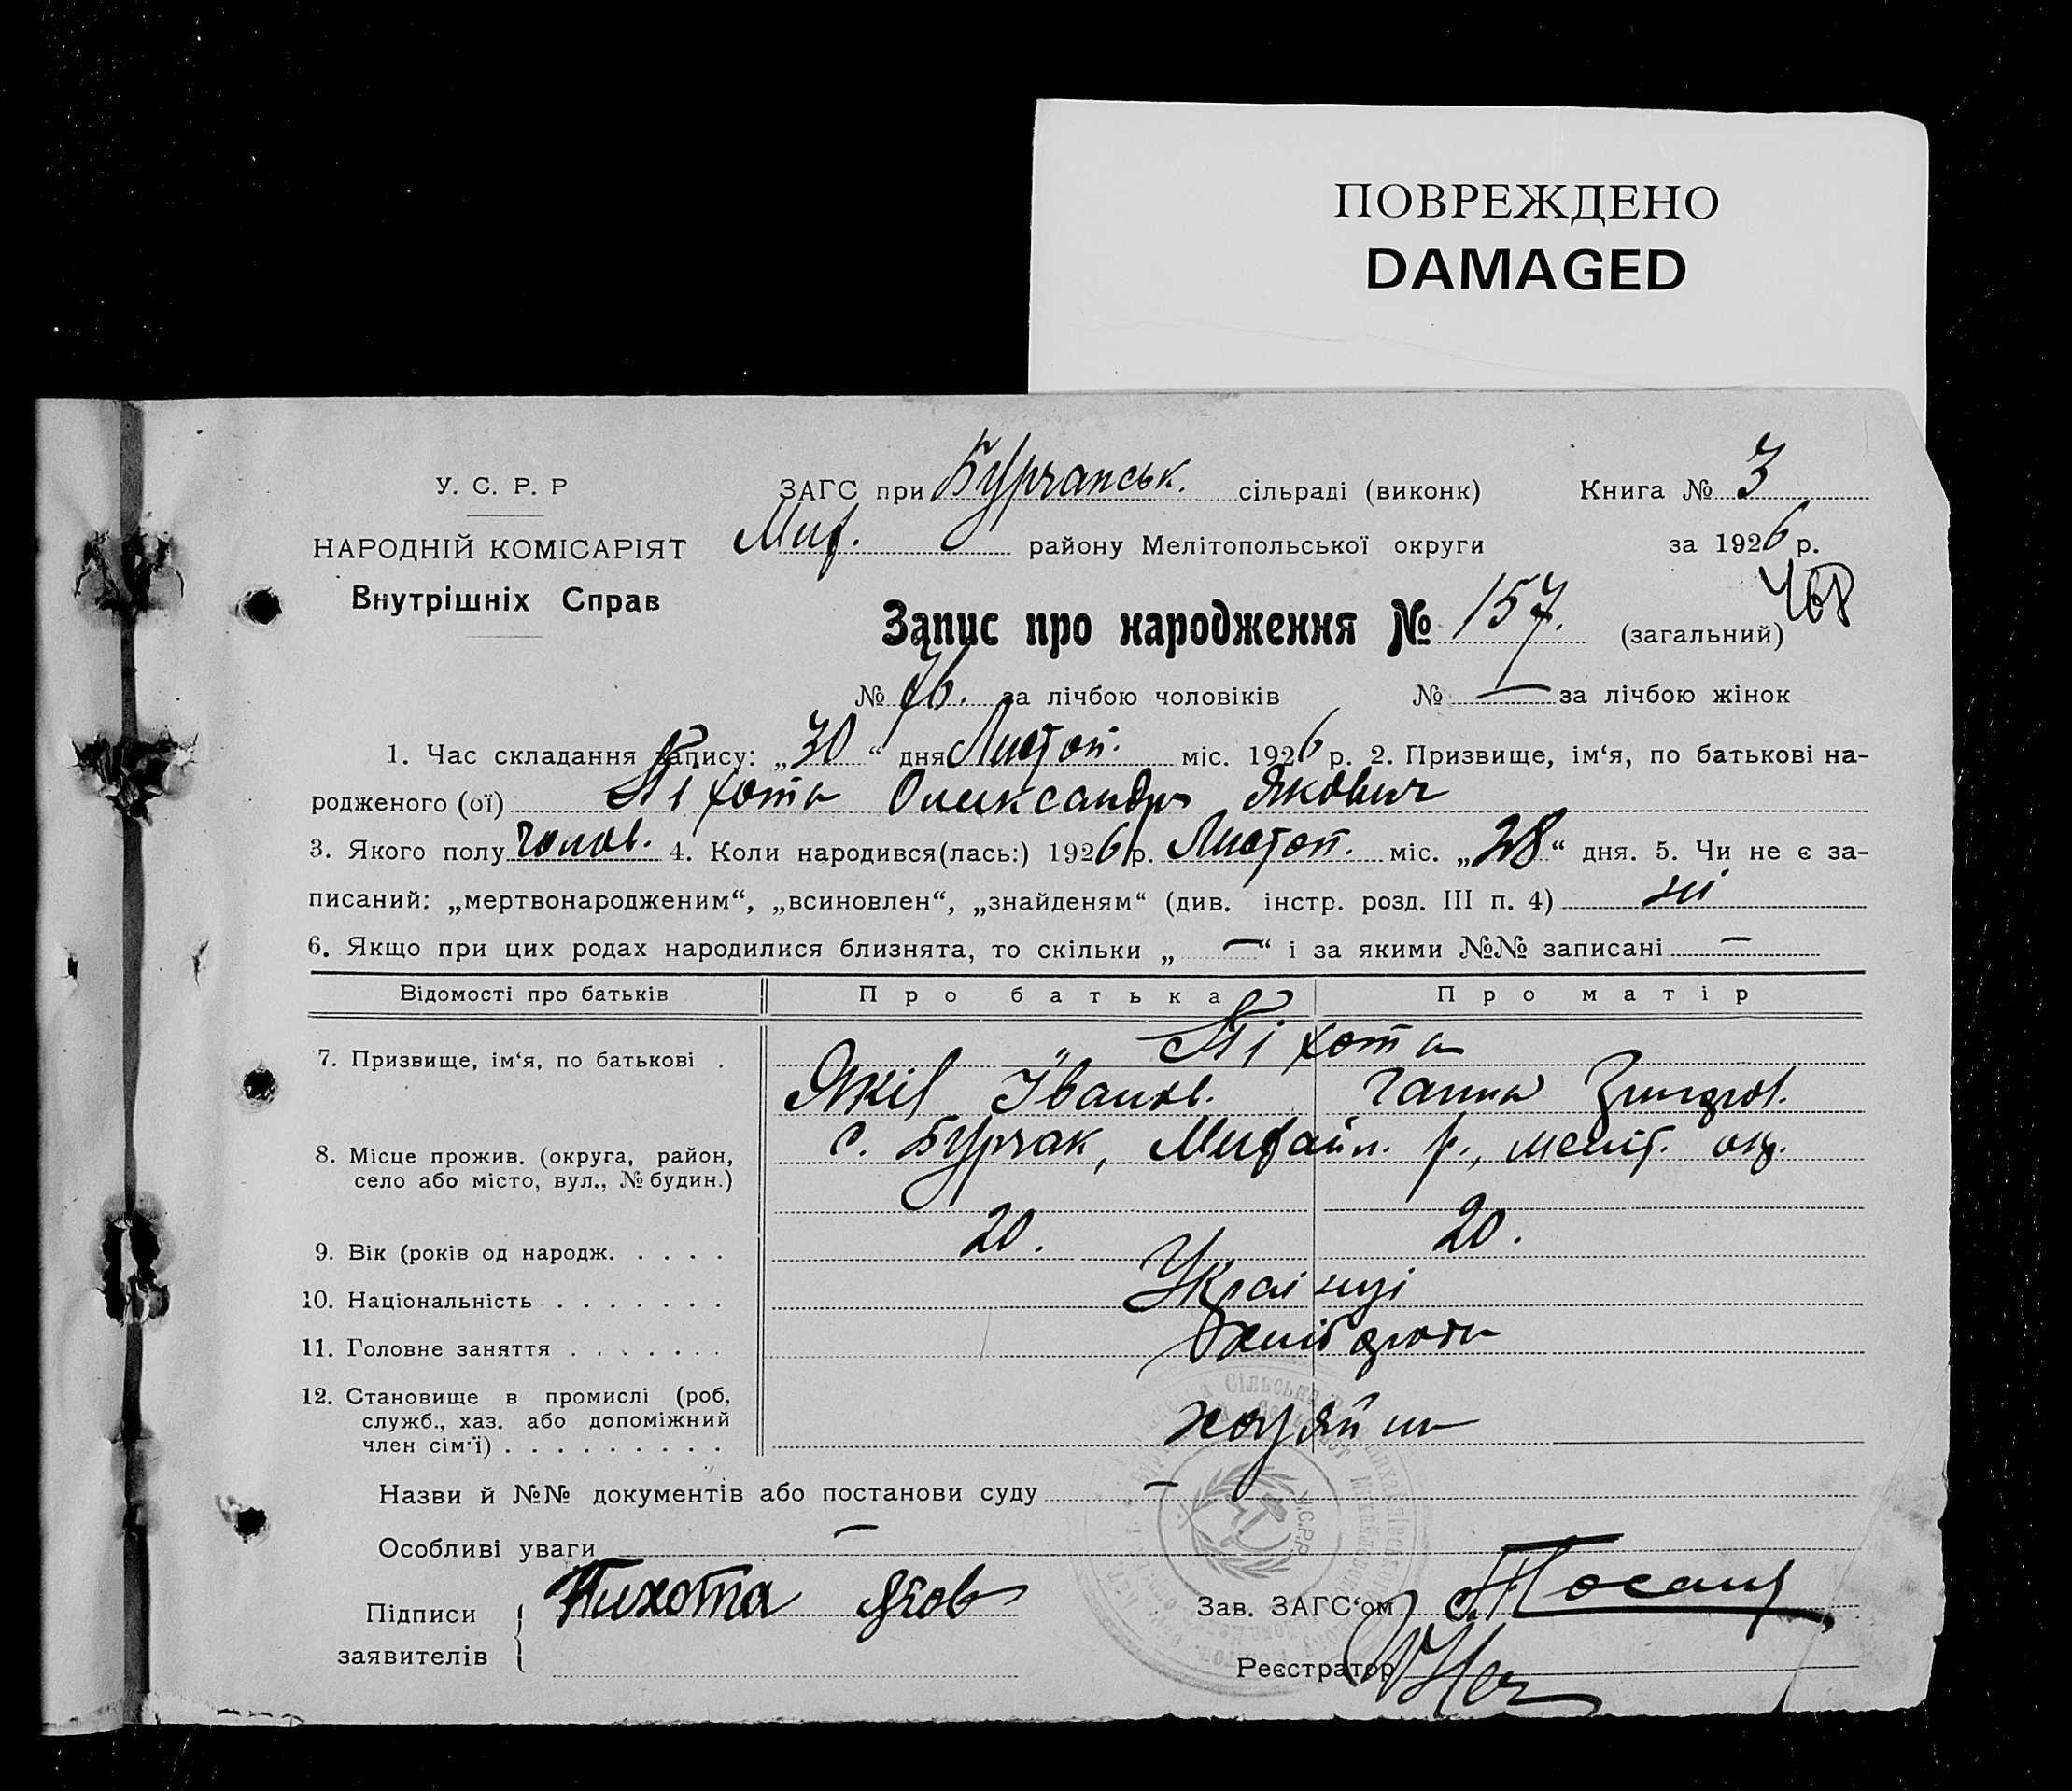 ПОВРЕЖДЕНО
DAMAGED
У. С. Р. Р
НАРОДНІЙ КОМІСАРІЯТ
Внутрішніх Справ
ЗАГС при Бурчанськ. сільраді (виконк) Книга № 3
Мих. району Мелітопольської округи за 1926 р.
468
Запис про народження № 157. (загальний)
№ 76. за лічбою чоловіків № — за лічбою жінок
1. Час складання запису: „30“ дня Листоп. міс. 1926 р. 2. Призвище, ім‘я, по батькові на-
родженого (ої) Піхота Олександр Якович
3. Якого полу чолов. 4. Коли народився(лась:) 1926 р. Листоп. міс. „28“ дня. 5. Чи не є за-
писаний: „мертвонародженим“, „всиновлен“, „знайденям“ (див. інстр. розд. III п. 4) ні
6. Якщо при цих родах народилися близнята, то скільки „—“ і за якими №№ записані —
Відомості про батьків Про батька Про матір
7. Призвище, ім‘я, по батькові . Піхота
Яків Іванов. Ганна
8. Місце прожив. (округа, район, село або місто, вул., № будин.) с. Бурчак, Михайл. р., меліт. окр.
9. Вік (років од народж. . . . . 20. 20.
10. Національність . . . . . . . Українці
11. Головне заняття . . . . . . . Хлібороби
12. Становище в промислі (роб,
служб., хаз. або допоміжний
член сім‘ї) . . . . . . . . . хазяїни
Назви й №№ документів або постанови суду —
Особливі уваги —
Підписи заявителів Пихота Яков
Зав. ЗАГС‘ом
Реєстратор
У.С.Р.Р.